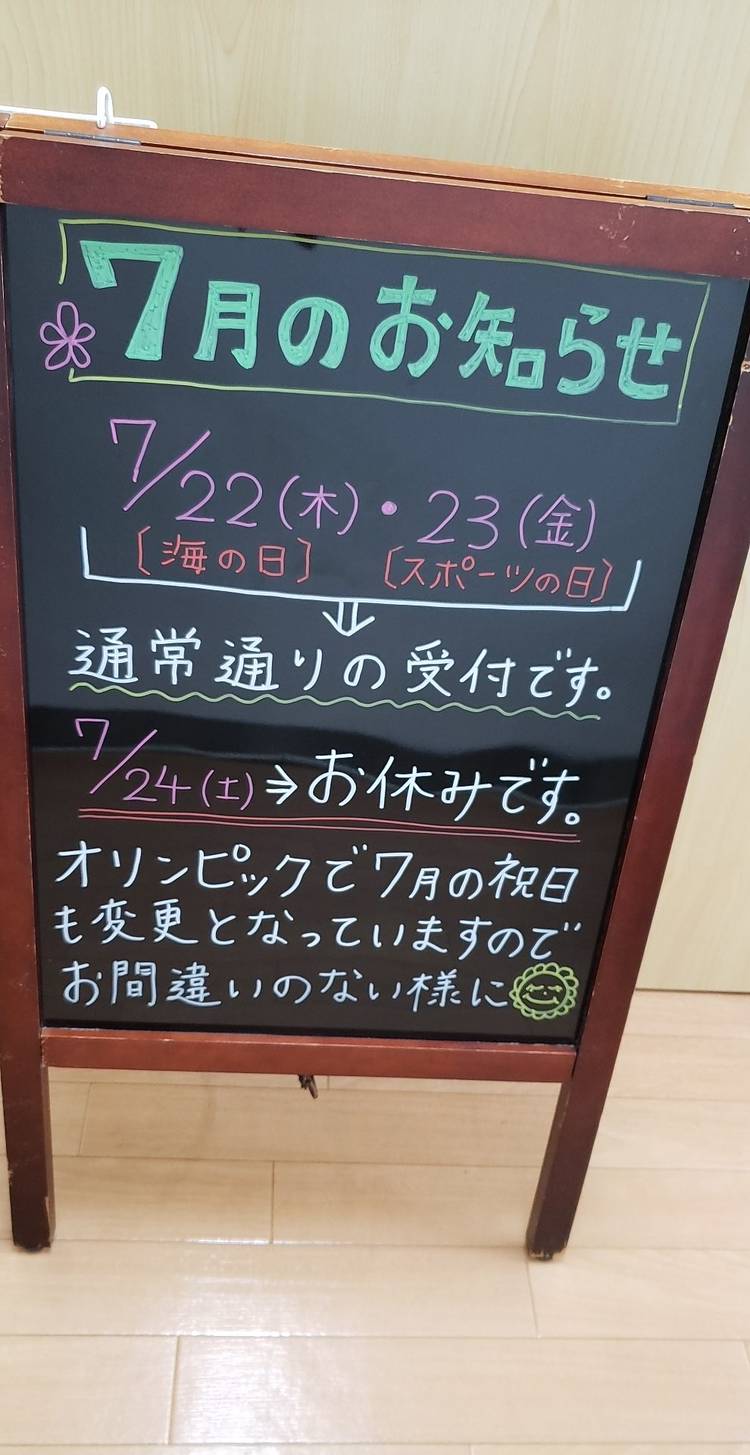 7月のお知らせ
7/22(木)・23(金)
〔海の日〕 〔スポーツの日〕
⇓
通常通りの受付です。
7/24(土)⇒お休みです。
オリンピックで7月の祝日
も変更となっていますので
お間違いのない様に